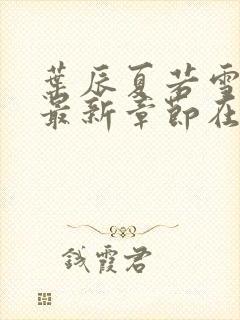 葉辰夏若雪
最新章節在
錢霞君